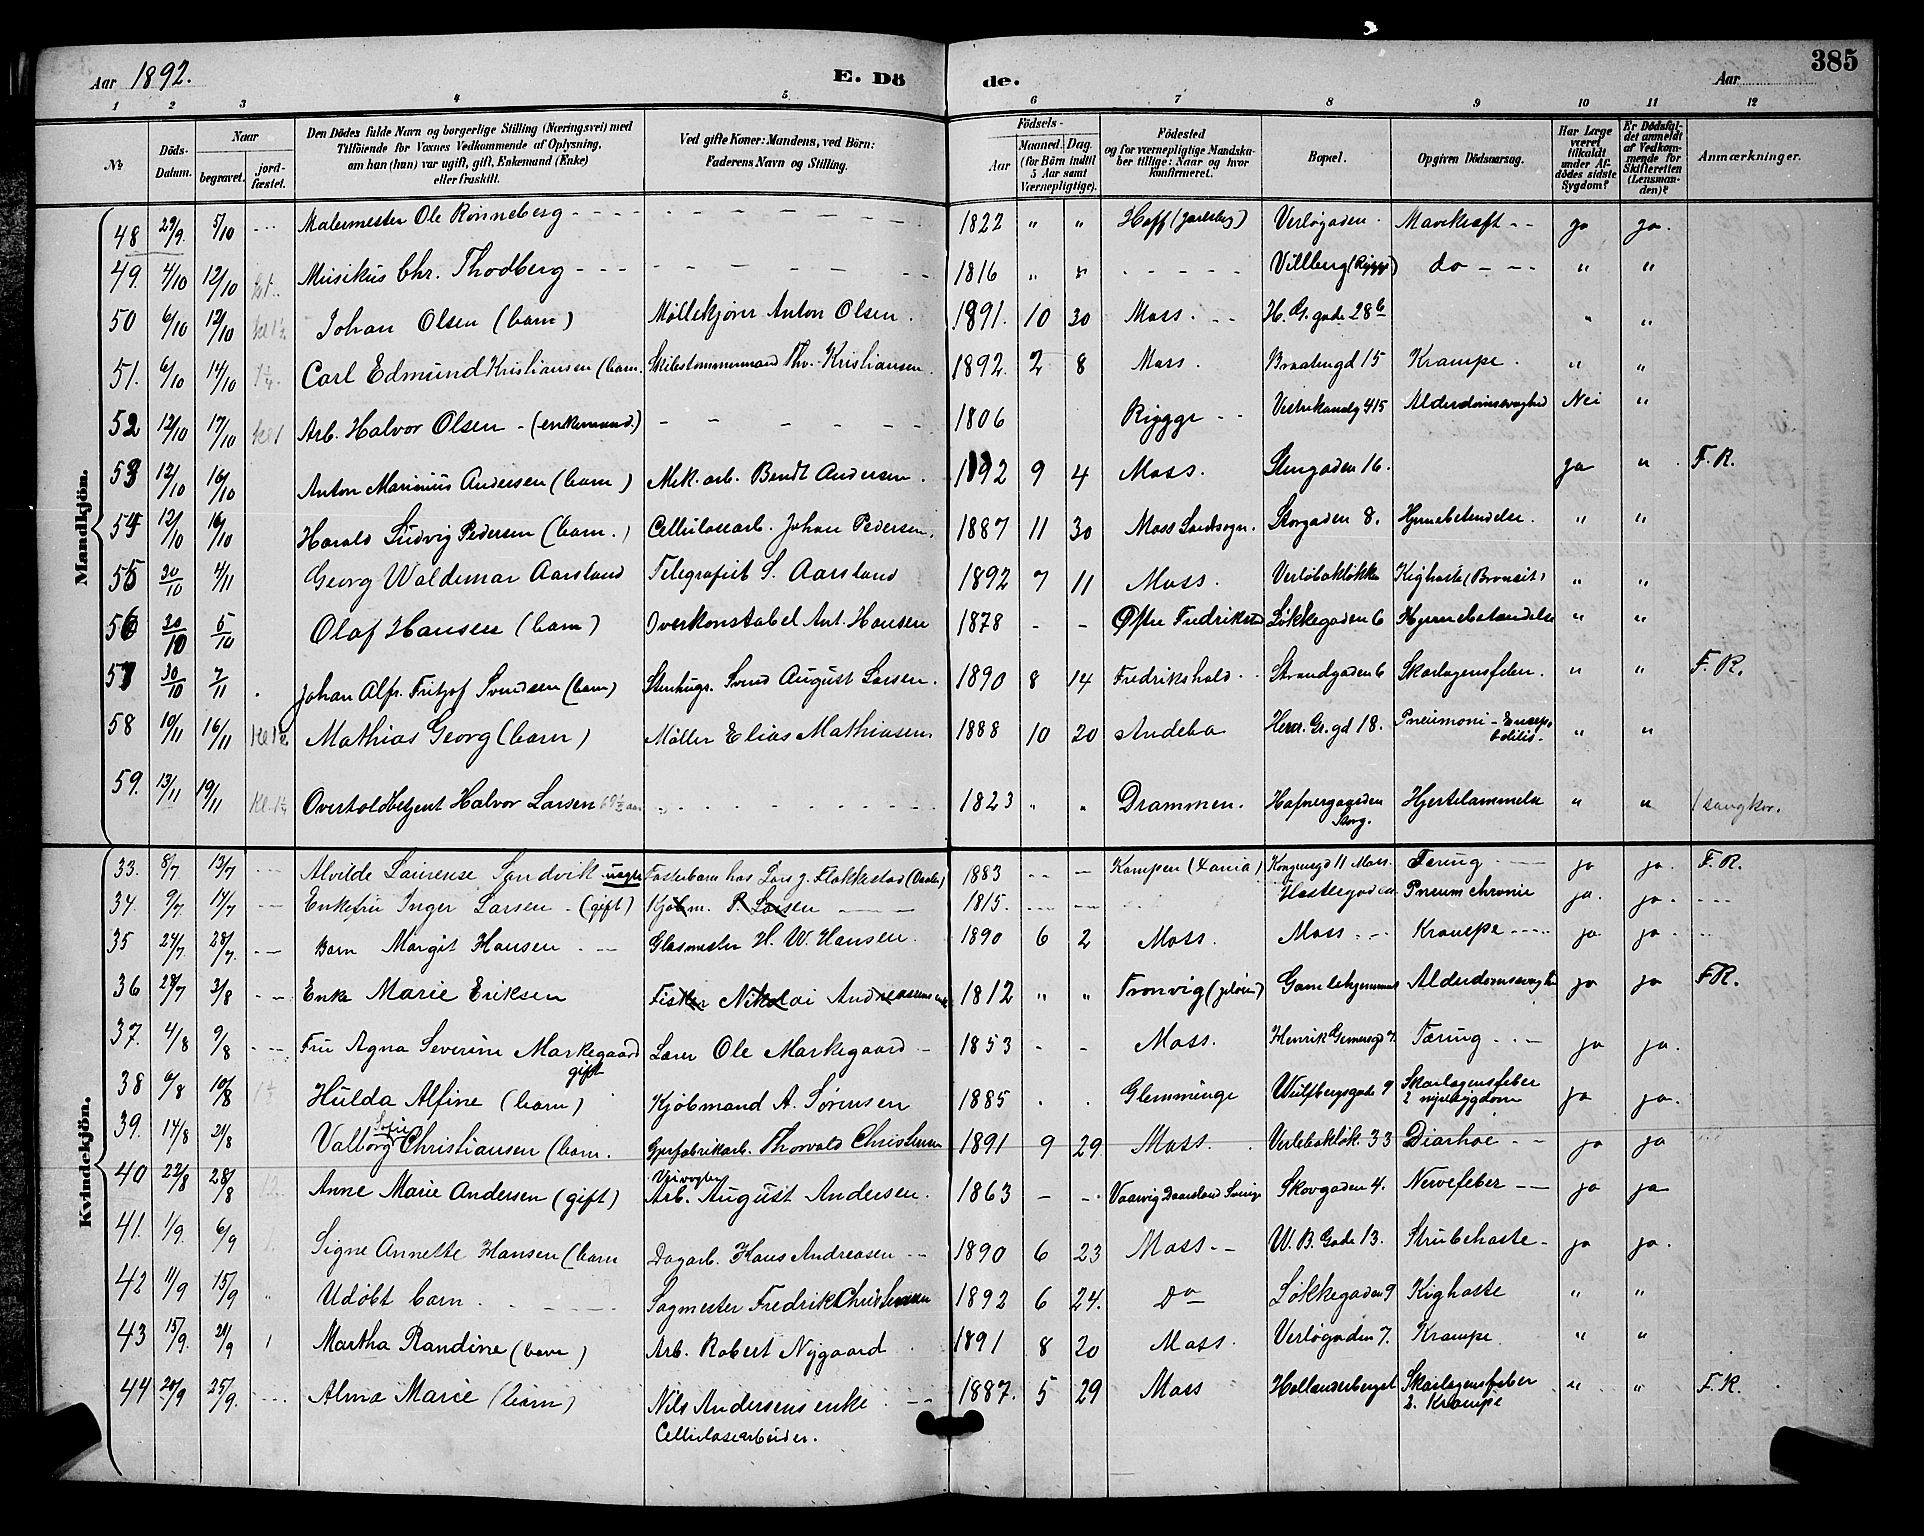 Aar 1892. E. Dö de. Aar 385
1 2 3 4 5 6 7 8 9 10 11 12
No Döds-Datum. Naar begravet. jordfæstet. Den Dödes fulde Navn og borgerlige Stilling (Næringsvei) med Tilföiende for Voxnes Vedkommende af Oplysning, om han (hun) var ugift, gift, Enkemand (Enke) eller fraskilt. Ved gifte Koner: Mandens, ved Börn: Faderens Navn og Stilling. Födsels- Aar Maaned. Dag. (for Börn indtil 5 Aar samt Værnepligtige). Födested og for værnepligtige Mandskaber tillige: Naar og hvor konfirmeret. Bopæl. Opgiven Dödsaarsag. Har Læge været tilkaldt under Afdödes sidste Sygdom? Er Dödsfaldet anmeldt af Vedkommende for Skifteretten (Lensmanden)? Anmærkninger.
Mandkjön.
48 29/9. 5/10 Malermester Ole Rönneberg 1822 " " Hoff (Jarlsberg) Verløgaden Mavekræft ja ja.
49. 4/10 12/10 Musikus Chr. Thodberg 1816 " " Villberg (Rygge) do " "
50 6/10 12/10 Johan Olsen (barn) Møllekjører Anton Olsen. 1891. 10 30 Moss. H. G. gade 28b " "
51. 6/10 14/10 Carl Edmund Kristiansen (barn. Skibstømmermand Thv. Kristiansen. 1892. 2 8 Moss. Braatengd 15 Krampe. " "
52 12/10 17/10 Arb. Halvor Olsen - (enkemand.) 1806 Rygge Alderdomssvaghed Nei "
53 12/10 16/10 Anton Marinius Andersen (barn) Mek. arb. Bendt Andersen. 1892 9 4 Moss. Stengaden 16. ja " F. R.
54 12/10 16/10 Harald Ludvig Pedersen (barn.) Cellulosearb. Johan Pedersen. 1887 11 30 Moss Landsogn. Storgaden 8. Hjernebetendelse. " "
55 30/10 4/11 Georg Waldemar Aarsland Telegrafist S. Aarsland 1892 7 11 Moss. Verløbakløkken Kighoste (Broncit) " "
56 30/10 5/10 Olaf Hansen (barn) Overkonstabel Ant. Hansen 1878 - - Østre Fredrikstad Løkkegaden 6 Hjernebetændelse " "
57 30/10 7/11 Johan Alfr. Fritjof Svendsen (barn) Stenhugr. Svend August Larsen. 1890 8 14 Fredrikshald Strandgaden 6 Skarlagensfeber. " " F. R.
58 10/11 16/11 Mathias Georg (barn) Møller Elias Mathiasen. 1888 10 20 Andebo Henr. Gr. gd 18. Pneumoni - " "
59. 13/11 19/11 Overtoldbetjent Halvor Larsen 1823 " " Drammen. Hafnergaarden Storg. Hjertelammelse " " (sangkor.
Kvindekjön.
33. 8/7. 13/7 Alvilde Laurense Sandvik ugift Fosterbarn hos Lars J. Flakkestad (Vaaler) 1883 -- - Kampen (X.ania) Kongensgd 11 Moss. Tæring ja ja. F. R.
34. 9/7. 14/7 Enkefru Inger Larsen - (gift) Kjöbm. P. Larsen 1815. Pneum chronic ja. ja.
35 24/7. 28/7. Barn Margit Hansen Glasmester H. W. Hansen. 1890 6 2 Moss. Moss Krampe ja ja.
36 28/7 3/8 Enke Marie Eriksen Fisker Nikolai Andreassens enke 1812 " " Tronvig (jeløen) Gamlehjemmet Alderdomssvaghed ja ja F.R.
37. 4/8 9/8 Fru Agna Severine Markegaard gift Lærer Ole Markegaard - 1853 - - Moss. Henrik Gernersgd 7. Tæring ja ja.
38 6/8 10/8 Hulda Alfine (barn) Kjöbmand A. Sørensen 1885 . . Glemminge Wulfbergsgade 9 Skarlagensfeber 2 nyresygdom ja ja.
39. 14/8 21/8 Valborg Sofie Christiansen (barn. Gjerfabrikarb. Thorvald Christiansen 1891 9 29 Moss. Verlebakløk. 33 Diarhoe ja ja
40 22/8 28/8 Anne Marie Andersen (gift) Veivogter Arb. August Andersen. 1863 - - Vaarvig Daarsland Sverige Skovgaden 4. Nervefeber ja ja
41. 1/9. 6/9 Signe Annette Hansen (barn Dagarb. Hans Andreasen 1890 6 23 Moss. W. B. Gade 13. Strubehoste ja ja.
42 11/9 15/9 Udøbt barn Sagmester Fredrik Christensen 1892 6 24. Do Løkkegaden 9 Kighoste " "
43 15/9. 21/9 Martha Randine (barn) Arb. Robert Nygaard 1891 8 20 Moss. Verløgaden 7. Krampe " "
44 20/9 25/9. Alma Marie (barn) Nils Andersens enke Cellulosearbeider. 1887. 5 29 Moss Hollenderberget Skarlagensfeber 2. Krampe " " F. R.